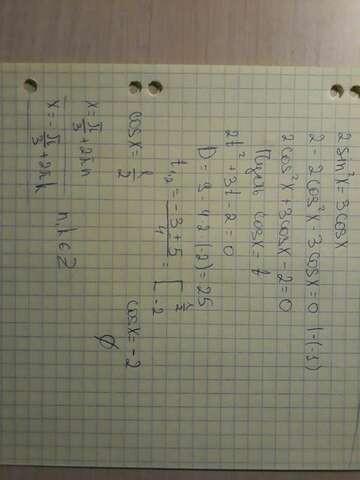 2 sin²x = 3 cosx
2 - 2cos²x - 3cosx = 0 |·(-1)
2cos²x + 3cosx - 2 = 0
Пусть cosx = t
2t² + 3t - 2 = 0
D = 9 - 4·2·(-2) = 25
t₁,₂ = (-3 ± 5)/4 = [ 1/2 -2
cosx = 1/2 cosx = -2
x = π/3 + 2πn ∅
x = -π/3 + 2πk n,k ∈ Z